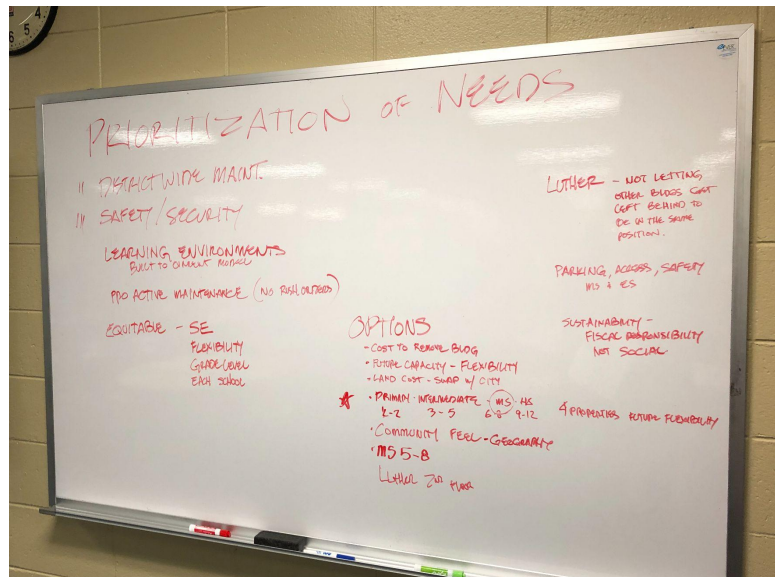 4.
5
6
PRIORITIZATION OF NEEDS
11 DISTRICT WIDE MAINT.
111 SAFETY/SECURITY
LEARNING ENVIRONMENTS
BUILT TO CURRENT MODEL
PRO ACTIVE MAINTENANCE (NO RUSH ORDERS)
EQUITABLE - SE
FLEXIBILITY
GRADE LEVEL
EACH SCHOOL
OPTIONS
- COST TO REMOVE BLDG
• FUTURE CAPACITY - FLEXIBILITY
• LAND COST - SWAP W/ CITY
★ • PRIMARY - INTERMEDIATE - MS - HS
K-2 3-5 6-8 9-12
• COMMUNITY FEEL - GEOGRAPHY
• MS 5-8
LUTHER 2ND
LUTHER - NOT LETTING
OTHER BLDGS GET
LEFT BEHIND TO
BE IN THE SAME
POSITION.
PARKING, ACCESS, SAFETY
MS & ES
SUSTAINABILITY -
FISCAL RESPONSIBILITY
NOT SOCIAL
4 PROPERTIES FUTURE FLEXIBILITY